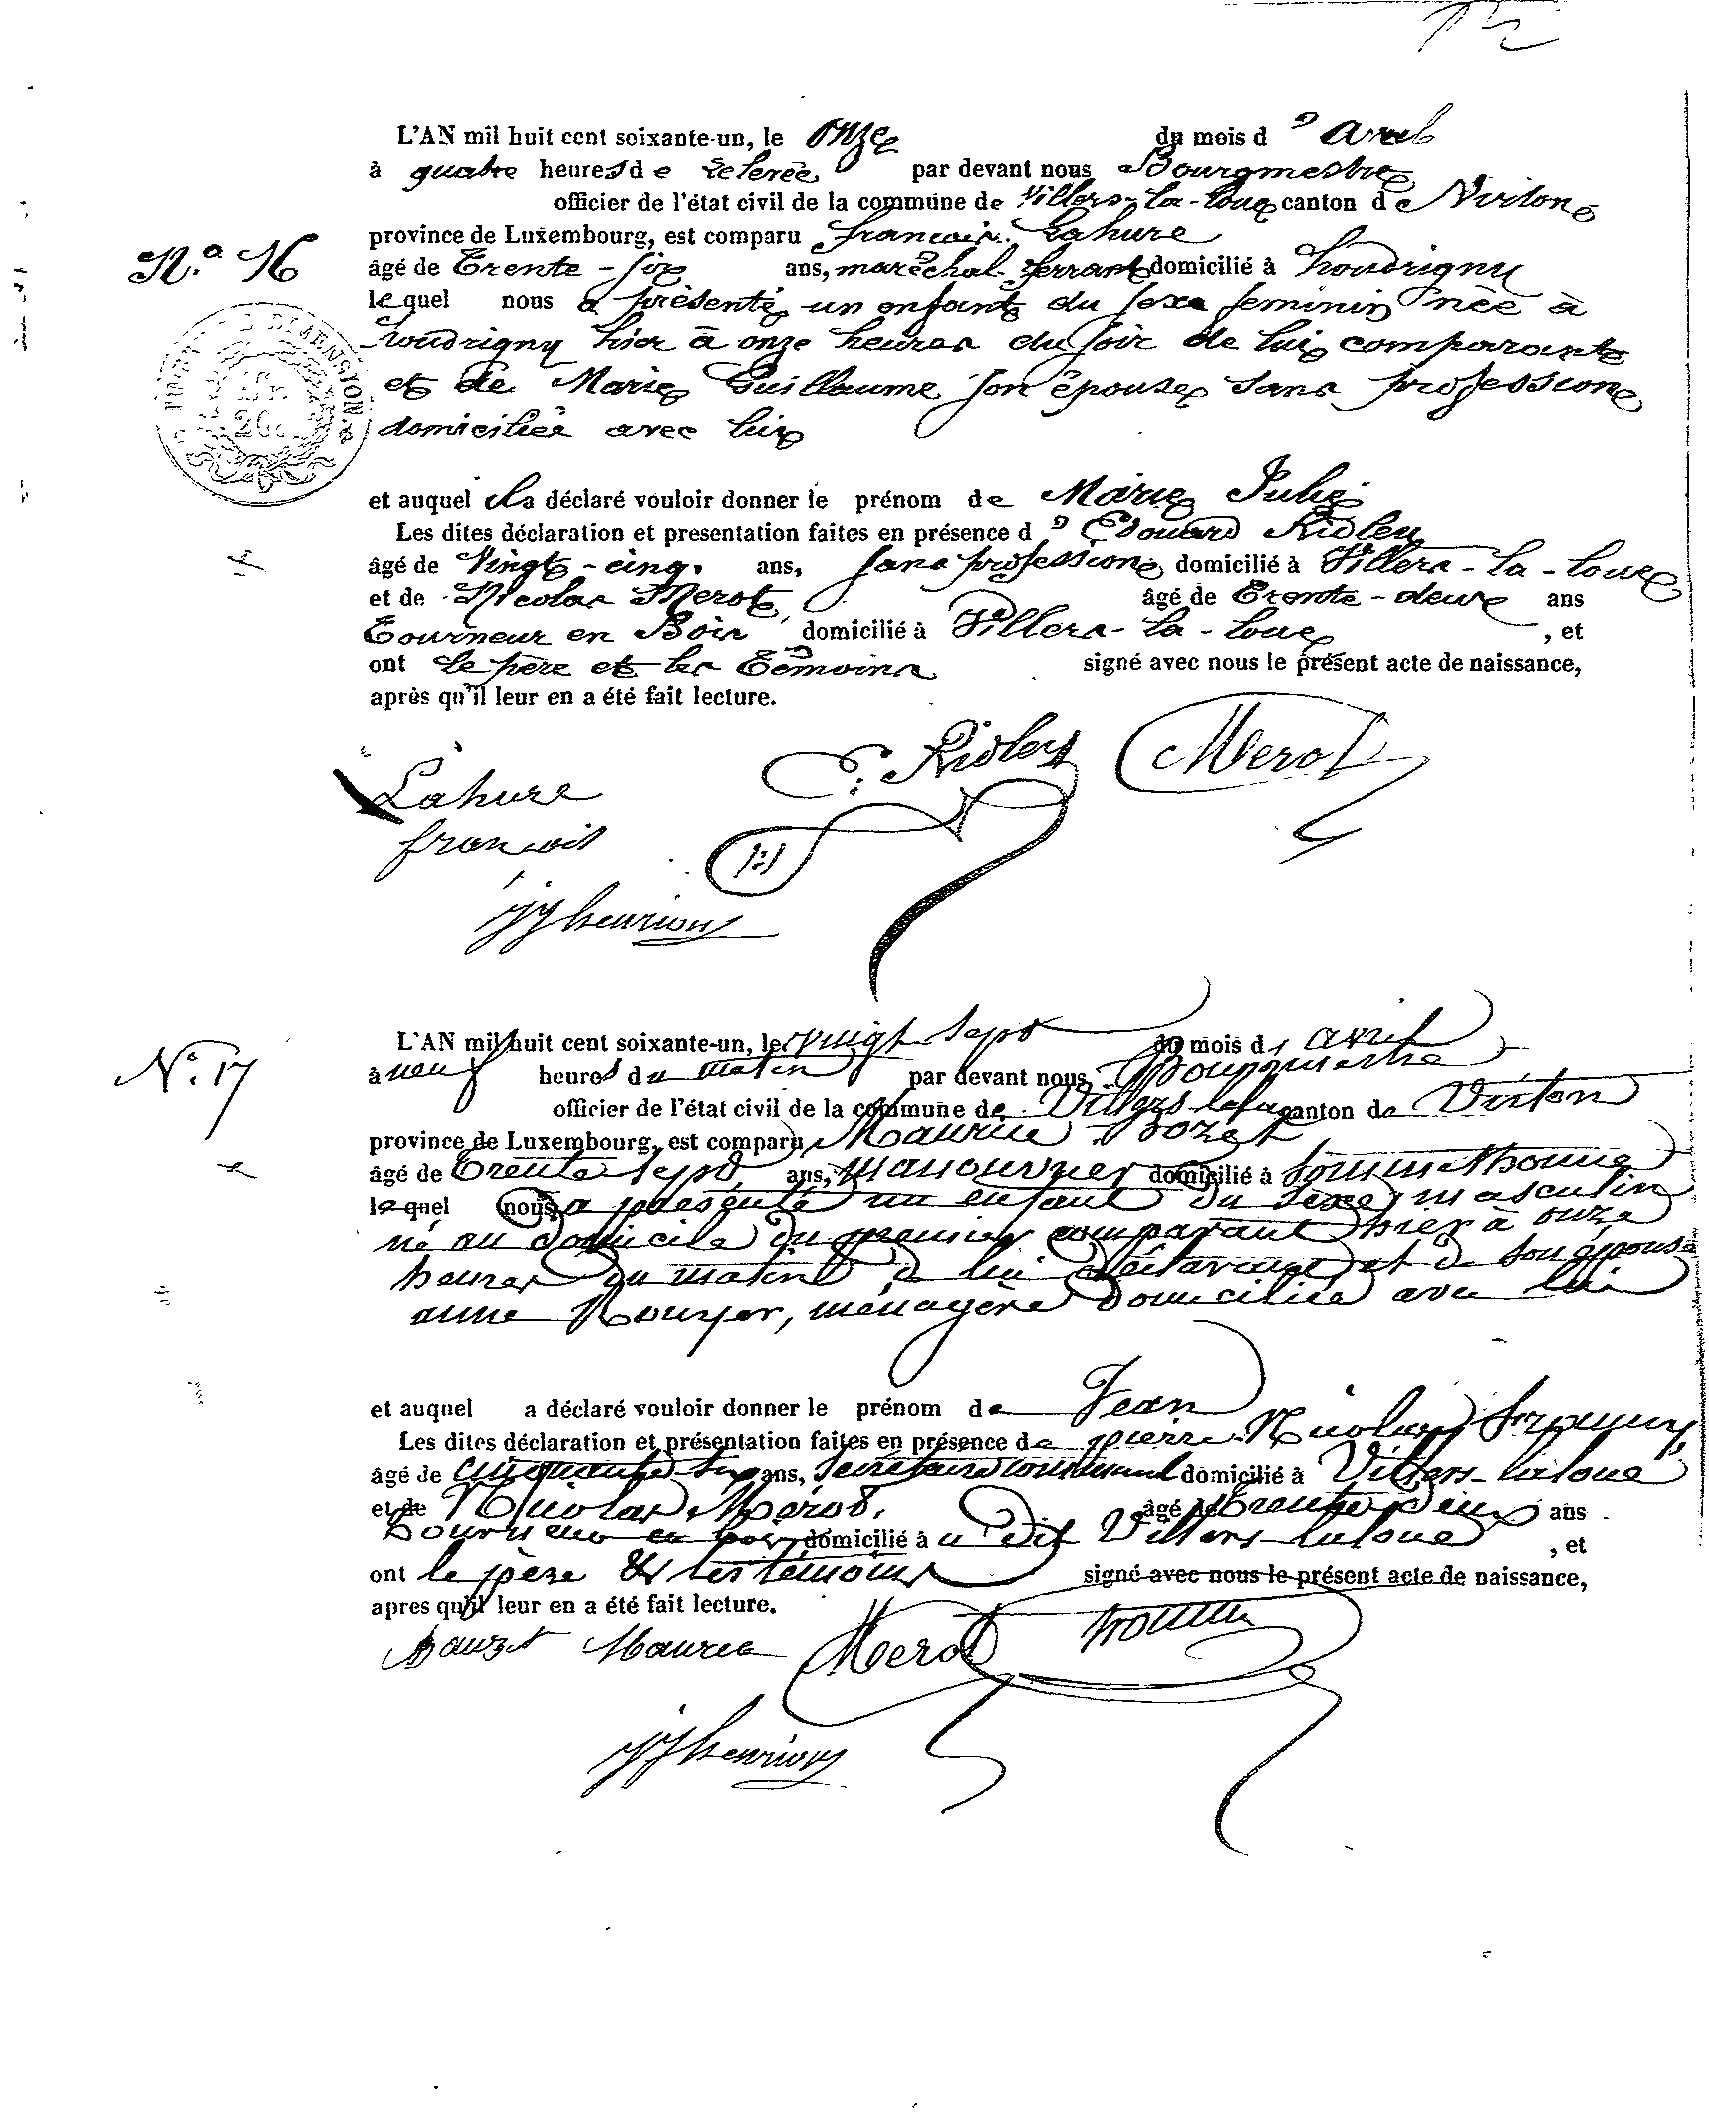 L'AN mil huit cent soixante-un, le onze du mois d' avril
à quatre heures de relevée par devant nous Bourgmestre
officier de l'état civil de la commune de Villers-la-Loue canton de Virton
N.o 16
province de Luxembourg, est comparu françois Lahure
âgé de Trente-six ans, maréchal ferrant domicilié à houdrigny
lequel nous a présenté un enfant du sexe feminin née à
houdrigny hier à onze heures du soir de lui comparant
et de Marie Guillaume son épouse sans profession
domiciliée avec lui
et auquel il a déclaré vouloir donner le prénom de Marie Julie
Les dites déclaration et presentation faites en présence d' Edouard Ridley
âgé de Vingt-cinq ans, sans profession domicilié à Villers-la-Loue
et de Nicolas Merot âgé de Trente-deux ans
Tourneur en Bois domicilié à Villers-la-Loue , et
ont le père et les Témoins signé avec nous le présent acte de naissance,
après qu'il leur en a été fait lecture.
E. Ridley Merot
Lahure
françois
jjhenrion
L'AN mil huit cent soixante-un, le vingt sept du mois d' avril
N.o 17
à neuf heures du matin par devant nous Bourgmestre
officier de l'état civil de la commune de Villers-laloue canton de Virton
province de Luxembourg, est comparu Maurice
âgé de Trente sept ans, manouvrier domicilié à Sommethonne
lequel nous a présenté un enfant du sexe masculin
né au domicile du premier comparant hier à onze
heures du matin de lui déclarant et de son épouse
anne Rouyer, ménagère domiciliée avec lui
et auquel a déclaré vouloir donner le prénom de Jean
Les dites déclaration et présentation faites en présence de pierre Nicolas
âgé de cinquante-six ans, secrétaire communal domicilié à Villers-laloue
et de Nicolas Mérot, âgé de trente deux ans
Tourneur en bois domicilié à u dit Villers-laloue , et
ont le père & les témoins signé avec nous le présent acte de naissance,
apres qu'il leur en a été fait lecture.
Maurice Merot
jjhenrion